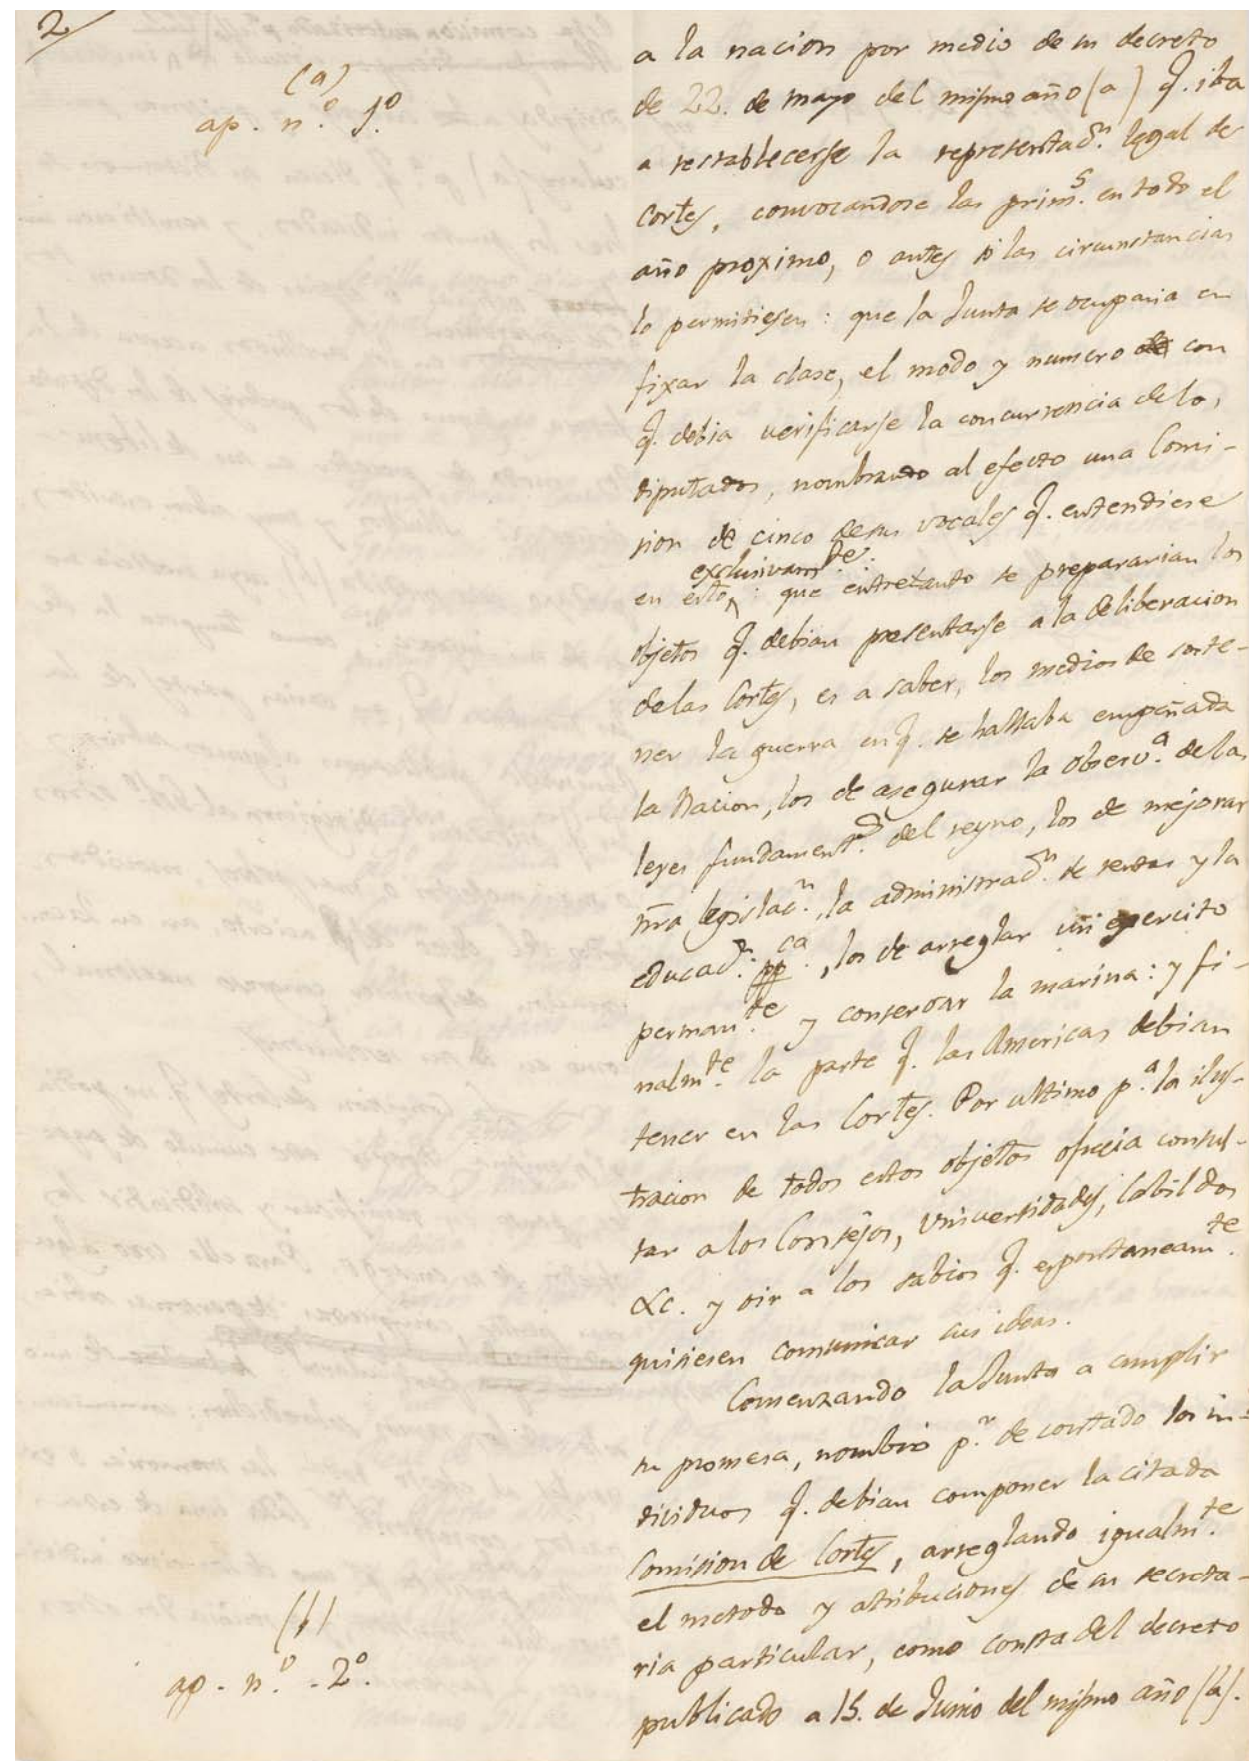 2
(a)
ap. n.º 1º.
a la nacion por medio de su decreto
de 22. de mayo del mismo año (a) q. iba
a restablecerse la representac.n legal de
Cortes, convocandose las prim.s en todo el
año proximo, o antes si las circunstancias
lo permitiesen: que la Junta se ocuparia en
fixar la clase, el modo y numero de con
q. debia verificarse la concurrencia de los
diputados, nombrando al efecto una Comi-
sion de cinco de sus vocales q. entendiese
exclusivam.te
en esto: que entretanto se prepararian los
objetos q. debian presentarse a la deliberacion
de las Cortes, es a saber, los medios de soste-
ner la guerra en q. se hallaba empeñada
la Nacion, los de asegurar la observ.a de las
leyes fundament.s del reyno, los de mejorar
nra legislac.n, la administrac.n de rentas y la
educac.n pp.ca, los de arreglar un exercito
perman.te y conservar la marina: y fi-
nalm.te la parte q. las Americas debian
tener en las Cortes. Por ultimo p.a la ilus-
tracion de todos estos objetos ofrecia consul-
tar a los Consejos, Universidades, Cabildos
&c. y oir a los sabios q. espontaneam.te
quisiesen comunicar sus ideas.
Comenzando la Junta a cumplir
su promesa, nombró p.r de contado los in-
dividuos q. debian componer la citada
Comision de Cortes, arreglando igualm.te
el metodo y atribuciones de su secreta-
ria particular, como consta del decreto
publicado a 15. de Junio del mismo año (b).
(b)
ap. n.º 2º.